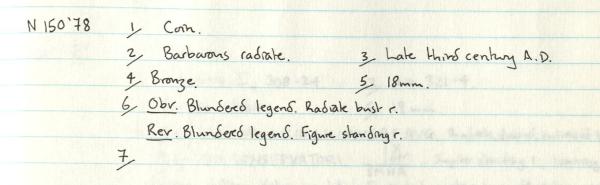 N 150'78 1/ Coin.
2/ Barbarous radiate. 3/ Late third century A.D.
4/ Bronze. 5/ 18mm.
6/ Obv. Blundered legend. Radiate bust r.
Rev. Blundered legend. Figure standing r.
7/